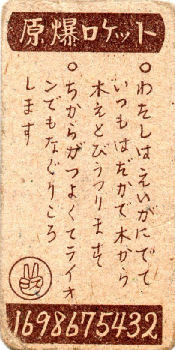 原爆ロケット
○わたしはえいがにでて
いつもはだかで木から
木えとびうつります
○ちからがつよくてライオ
ンでもなぐりころ
します
1698675432